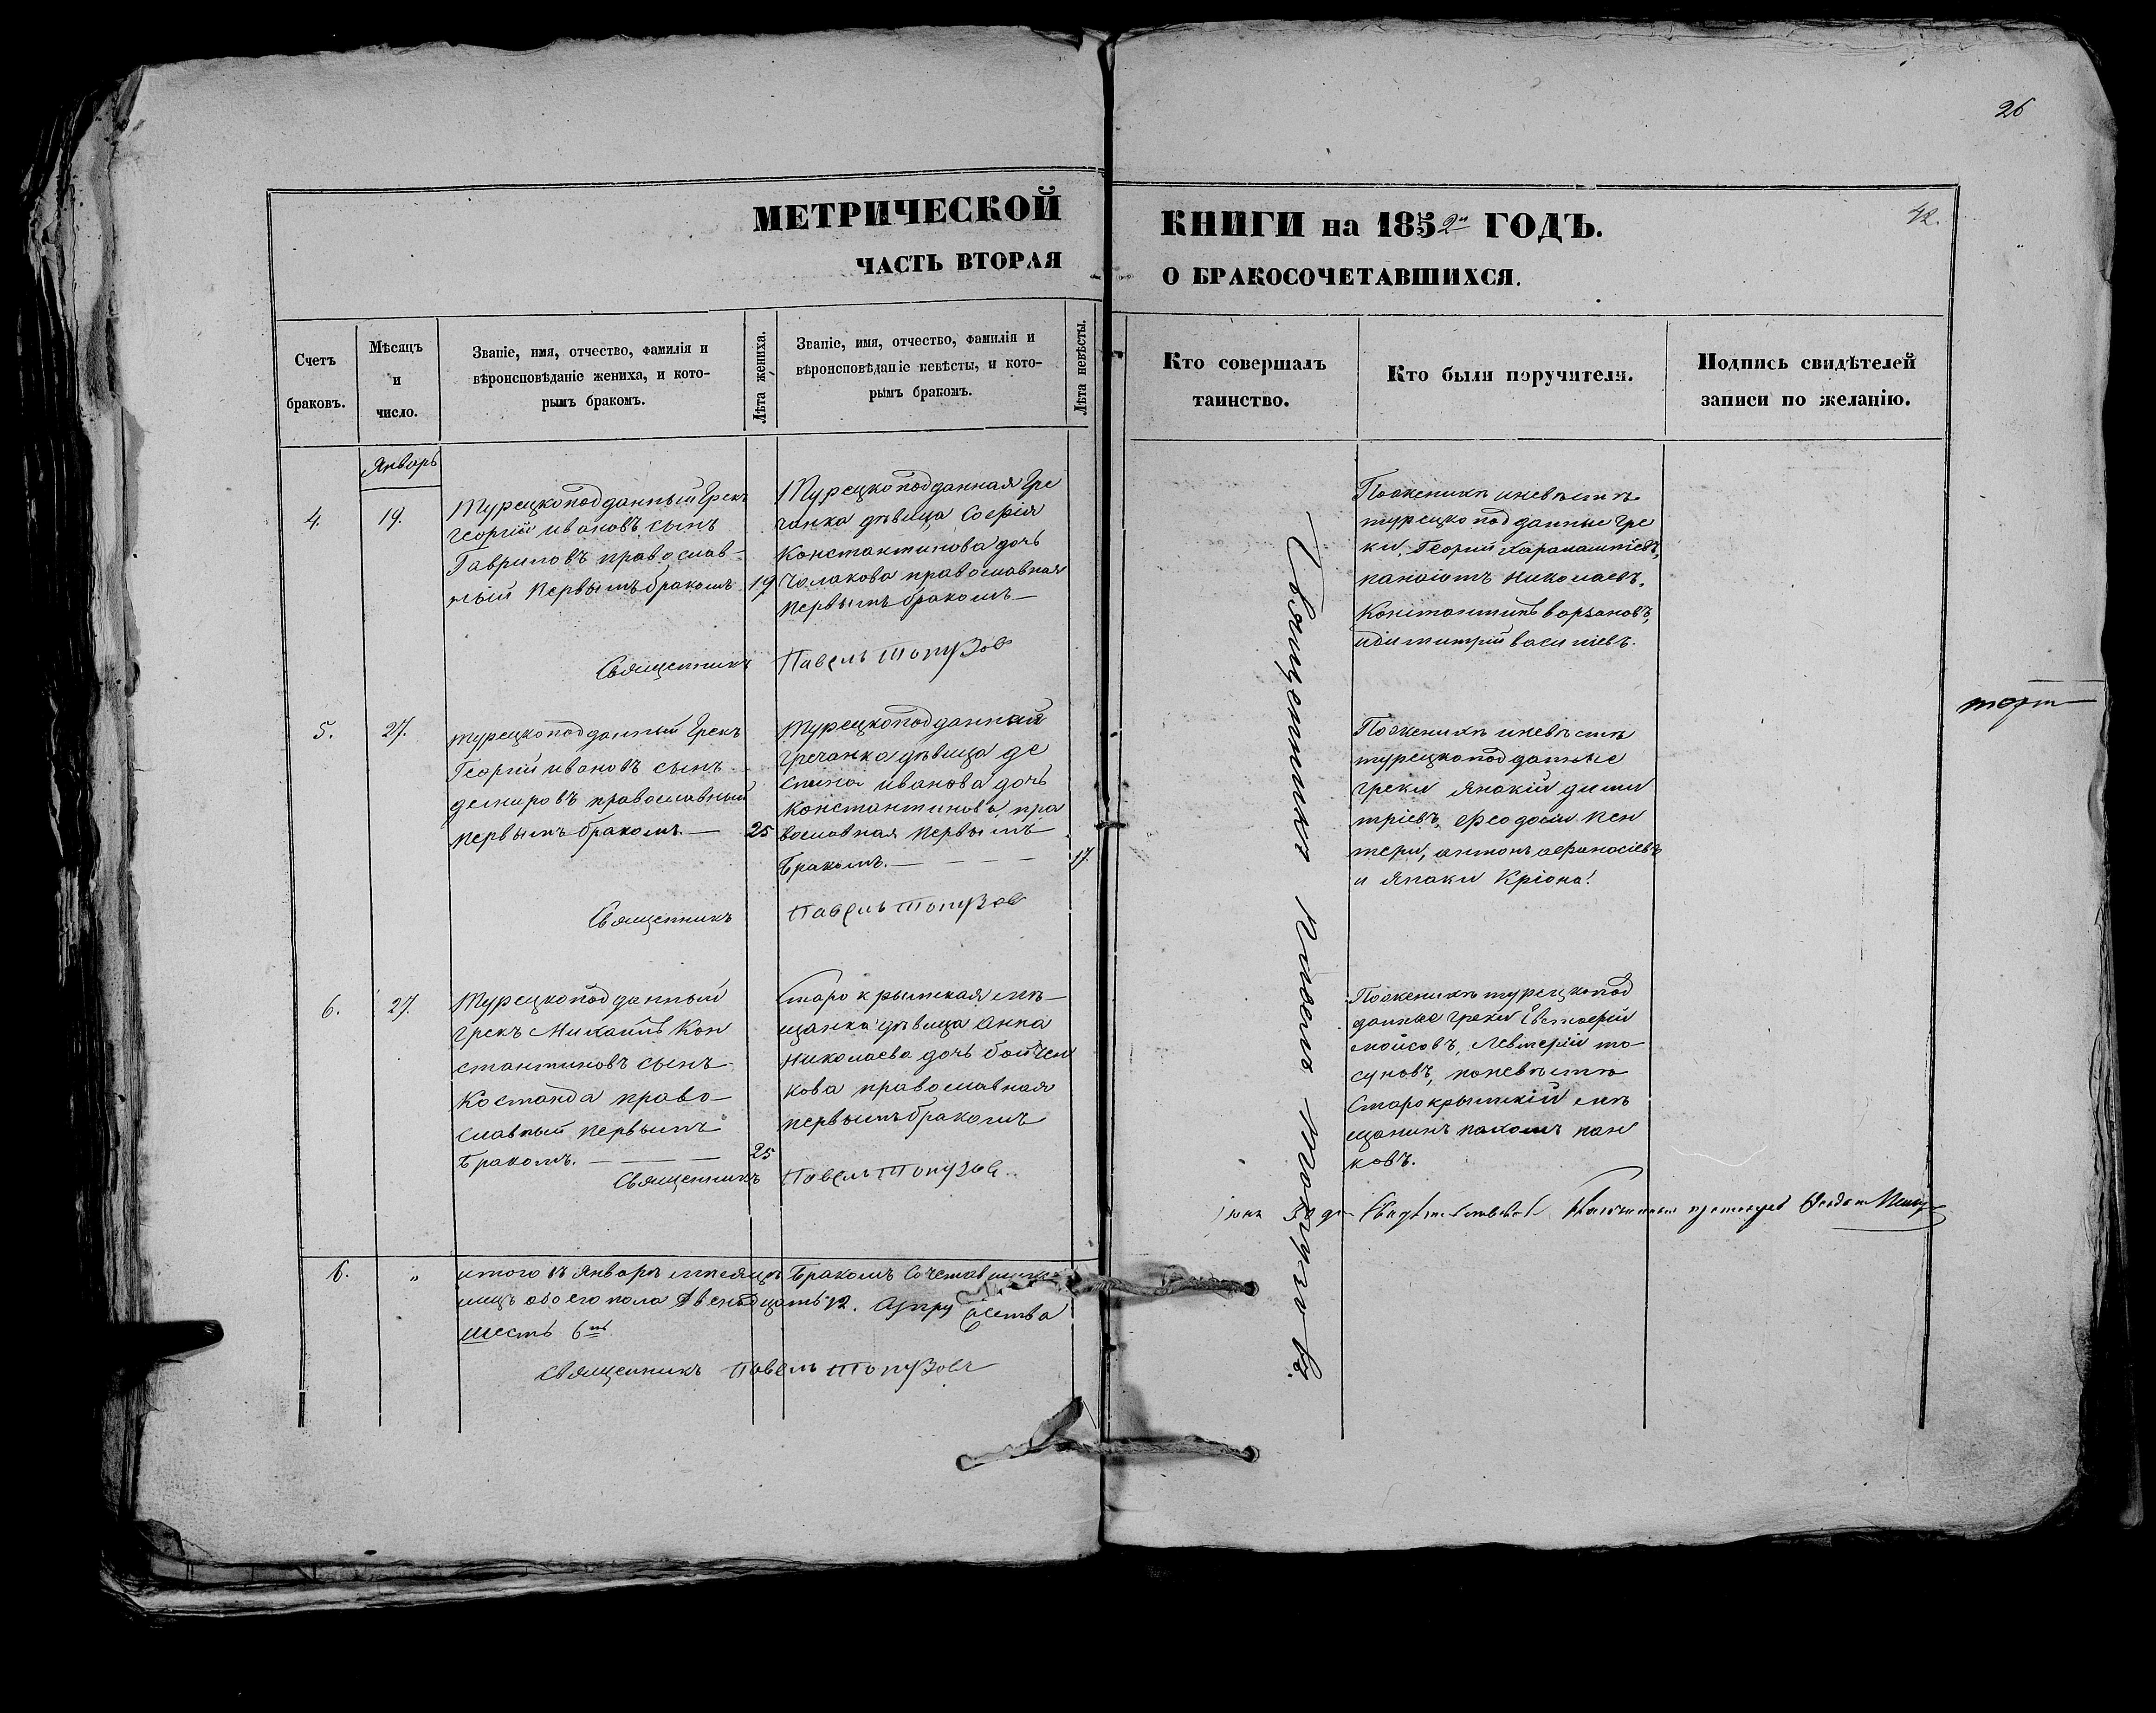 26
МЕТРИЧЕСКОЙ
ЧАСТЬ ВТОРАЯ
КНИГИ на 1852й ГОДЪ.
О БРАКОСОЧЕТАВШИХСЯ.
42.
Счетъ
браковъ.
Мѣсяцъ
и
число.
Званіе, имя, отчество, фамилія и
вѣроисповѣданіе жениха, и кото-
рымъ бракомъ.
Лѣта жениха.
Званіе, имя, отчество, фамилія и
вѣроисповѣданіе невѣсты, и кото-
рымъ бракомъ.
Лѣта невѣсты.
Кто совершалъ
таинство.
Кто были поручители.
Подпись свидѣтелей
записи по желанію.
Январь
4.
19.
Турецкоподданный Грекъ
Георгій Ивановъ сынъ
Гавриловъ православ-
ный первымъ бракомъ
19
Турецкоподданная Гре
чанка дѣвица Софія
Константинова дочь
Чолакова православная
первымъ бракомъ—
Священникъ Павелъ Топузов
По женихѣ и невѣстѣ
турецкоподданные Гре
ки, Георгій
панаіотъ Николаевъ,
Константинъ
и Димитрій Василіевъ.
5.
27.
турецкоподданный Грекъ
Георгій Ивановъ сынъ
демировъ православный
первымъ бракомъ. —
25
Турецкоподданная
Гречанка дѣвица Де
спина Иванова дочь
Константинова, пра
вославная первымъ
бракомъ. — — — —
17.
Священникъ Павелъ Топузов
По женихѣ и невѣстѣ
турецкоподданные
греки Янакій дими
тріевъ, Феодосій Пен
тери, антонъ афанасіевъ
и Янаки Кріона.
6.
27.
Турецкоподданный
грекъ Михаилъ Кон
стантиновъ сынъ
Костанда право-
славный первымъ
бракомъ. — — —
25
Старокрымская мѣ-
щанка дѣвица Анна
Николаева дочь Бойчен
кова православная
первымъ бракомъ
Священникъ Павелъ Топузов.
По женихѣ турецкопод
данные греки Евстафій
мойсовъ, Левтерій то-
суновъ, по невѣстѣ
Старокрымскій мѣ
щанинъ пахомъ пан
ковъ.
Священникъ Павелъ Топузовъ.
6.
"
итого въ Январѣ мѣсяцѣ бракомъ сочетавшихся
лицъ обоего пола Двенадцать 12. Супружества
шесть 6ть.
Священникъ Павелъ Топузовъ